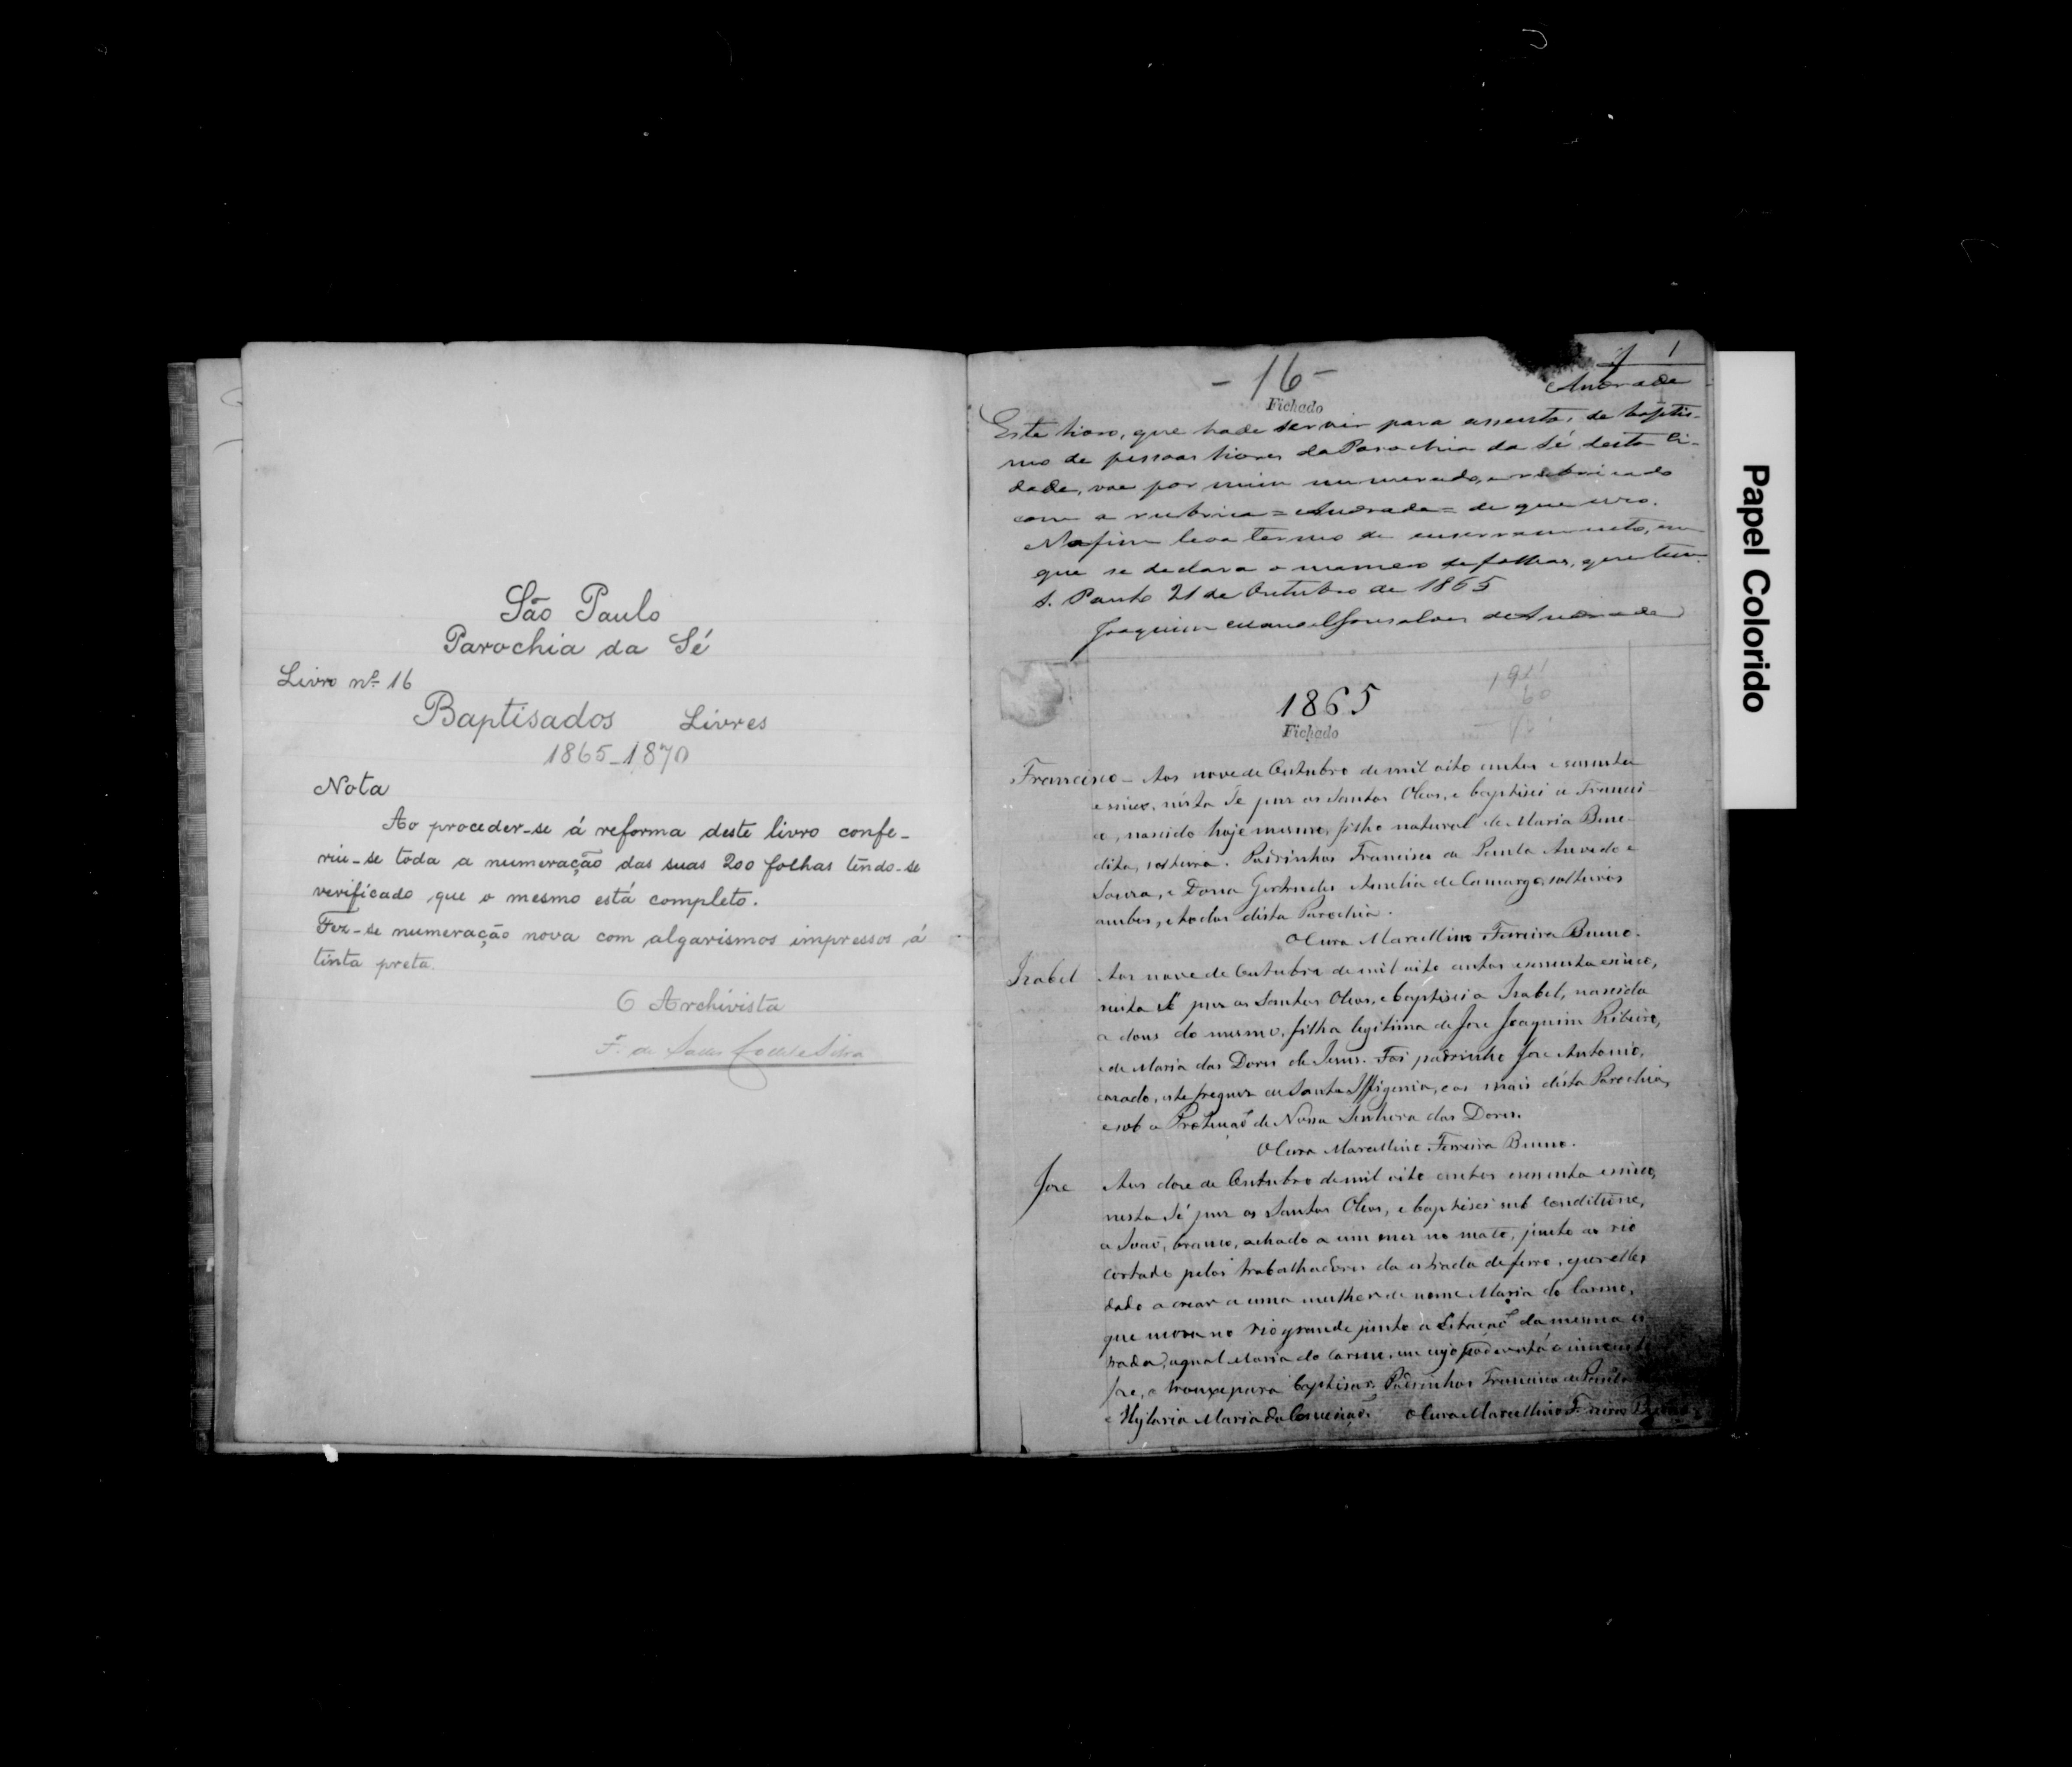 São Paulo
Parochia da Sé
Livro nº 16
Baptisados Livres
1865-1870
Nota
Ao proceder-se á reforma deste livro confe-
riu-se toda a numeração das suas 200 folhas tendo-se
verificado que o mesmo está completo.
Fez-se numeração nova com algarismos impressos á
tinta preta.
O Archivista
F. de Salles
- 16 -
1
Andrade
Fichado
Este livro, que hade servir para assentos de baptis-
mo de pessoas livres da Parochia da Sé desta Ci-
dade, vae por mim numerado, e rubricado
com a rubrica = Andrade = de que uso.
No fim leva termo de encerramento, em
que se declara o numero de folhas, que tem.
S. Paulo 21 de Outubro de 1865
Joaquim Manoel Gonsalves de Andrade
1865
Fichado
Francisco - Aos nove de Outubro de mil oito centos e sessenta
e cinco, nésta Sé puz os Santos Oleos, e baptisei a Franci-
co, nascido hoje mesmo, filho natural de Maria Bene-
dita, solteira. Padrinhos Francisco de Paula Azevedo e
Souza, e Dona Gertrudes Amelia de Camargo, solteiros
ambos, e todos désta Parochia.
O Cura Marcellino Ferreira Bueno.
Izabel Aos nove de Outubro de mil oito centos e sessenta e cinco,
nésta Sé puz os Santos Oleos, e baptisei a Izabel, nascida
a dous do mesmo, filha legitima de Jose Joaquim Ribeiro,
e de Maria das Dores de Jesus. Foi padrinho Jose Antonio,
casado, este freguez de Santa Iffigenia, e os mais désta Parochia,
e sob a Proteçaõ de Nossa Senhora das Dores.
O Cura Marcellino Ferreira Bueno.
Jose Aos doze de Outubro de mil oito centos e sessenta e cinco,
nesta Sé puz os Santos Oleos, e baptisei sub conditione,
a Joaõ, branco, achado a um mez no mato, junto ao rio
cortado pelos trabalhadores da estrada de ferro, por elles
dado a crear a uma mulher de nome Maria do Carmo,
que mora no rio grande junto a Estaçaõ da mesma es
trada, a qual Maria do Carmo, em cujo poder está o innocente
Jose, o trouxe para baptisar. Padrinhos Francisco de Paula
e Hylaria Maria da Conceiçaõ. O Cura Marcellino Ferreira Bueno
Papel Colorido